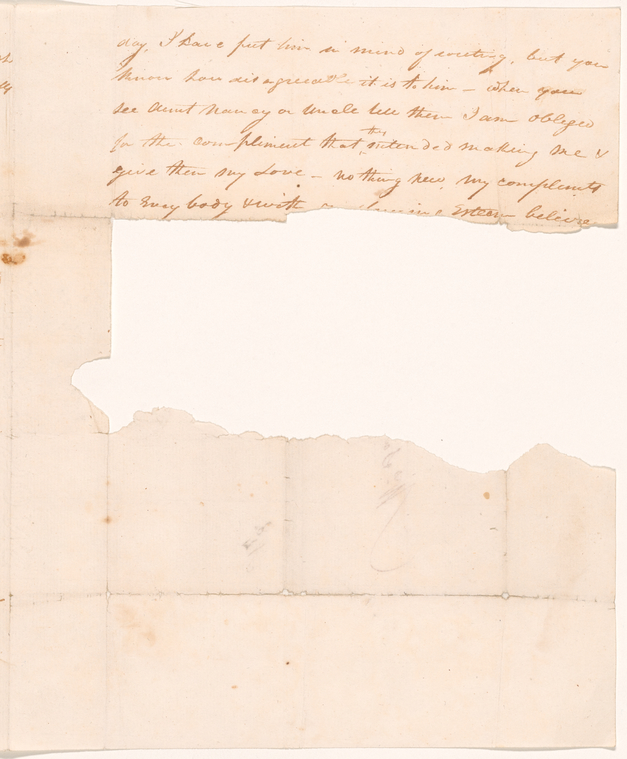 day, I have put him in mind of writing, but you
know how disagreeable it is to him – when you
see Aunt Nancy or Uncle tell them I am obliged
for the compliment that they intended making me &
give them my Love – nothing new, my compliments
to every body & with Esteem believe